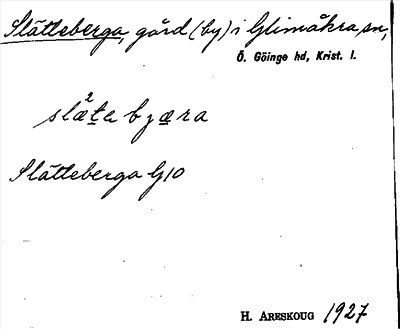 Slätteberga, gård (by) i Glimåkra sn,
Ö. Göinge hd, Krist. l.
slæ²te bjæra
Slätteberga G10
H. ARESKOUG 1927